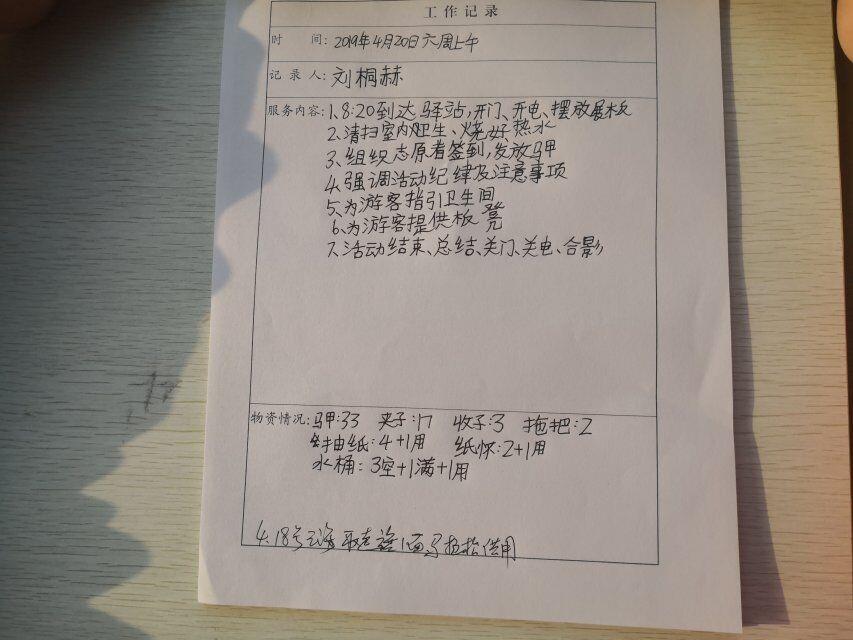 工作记录
时 间: 2019年4月20日六周上午
记录人: 刘桐赫
服务内容: 1、8:20到达驿站,开门、开电、摆放展板
2、清扫室内卫生、烧好热水
3、组织志愿者签到,发放马甲
4、强调活动纪律及注意事项
5、为游客指引卫生间
6、为游客提供板凳
7、活动结束、总结、关门、关电、合影
物资情况: 马甲:33 夹子:17 收子:3 拖把:2
抽纸:4+1用 纸怀:2+1用
水桶:3空+1满+1用
4.18号 取走 1面 借用